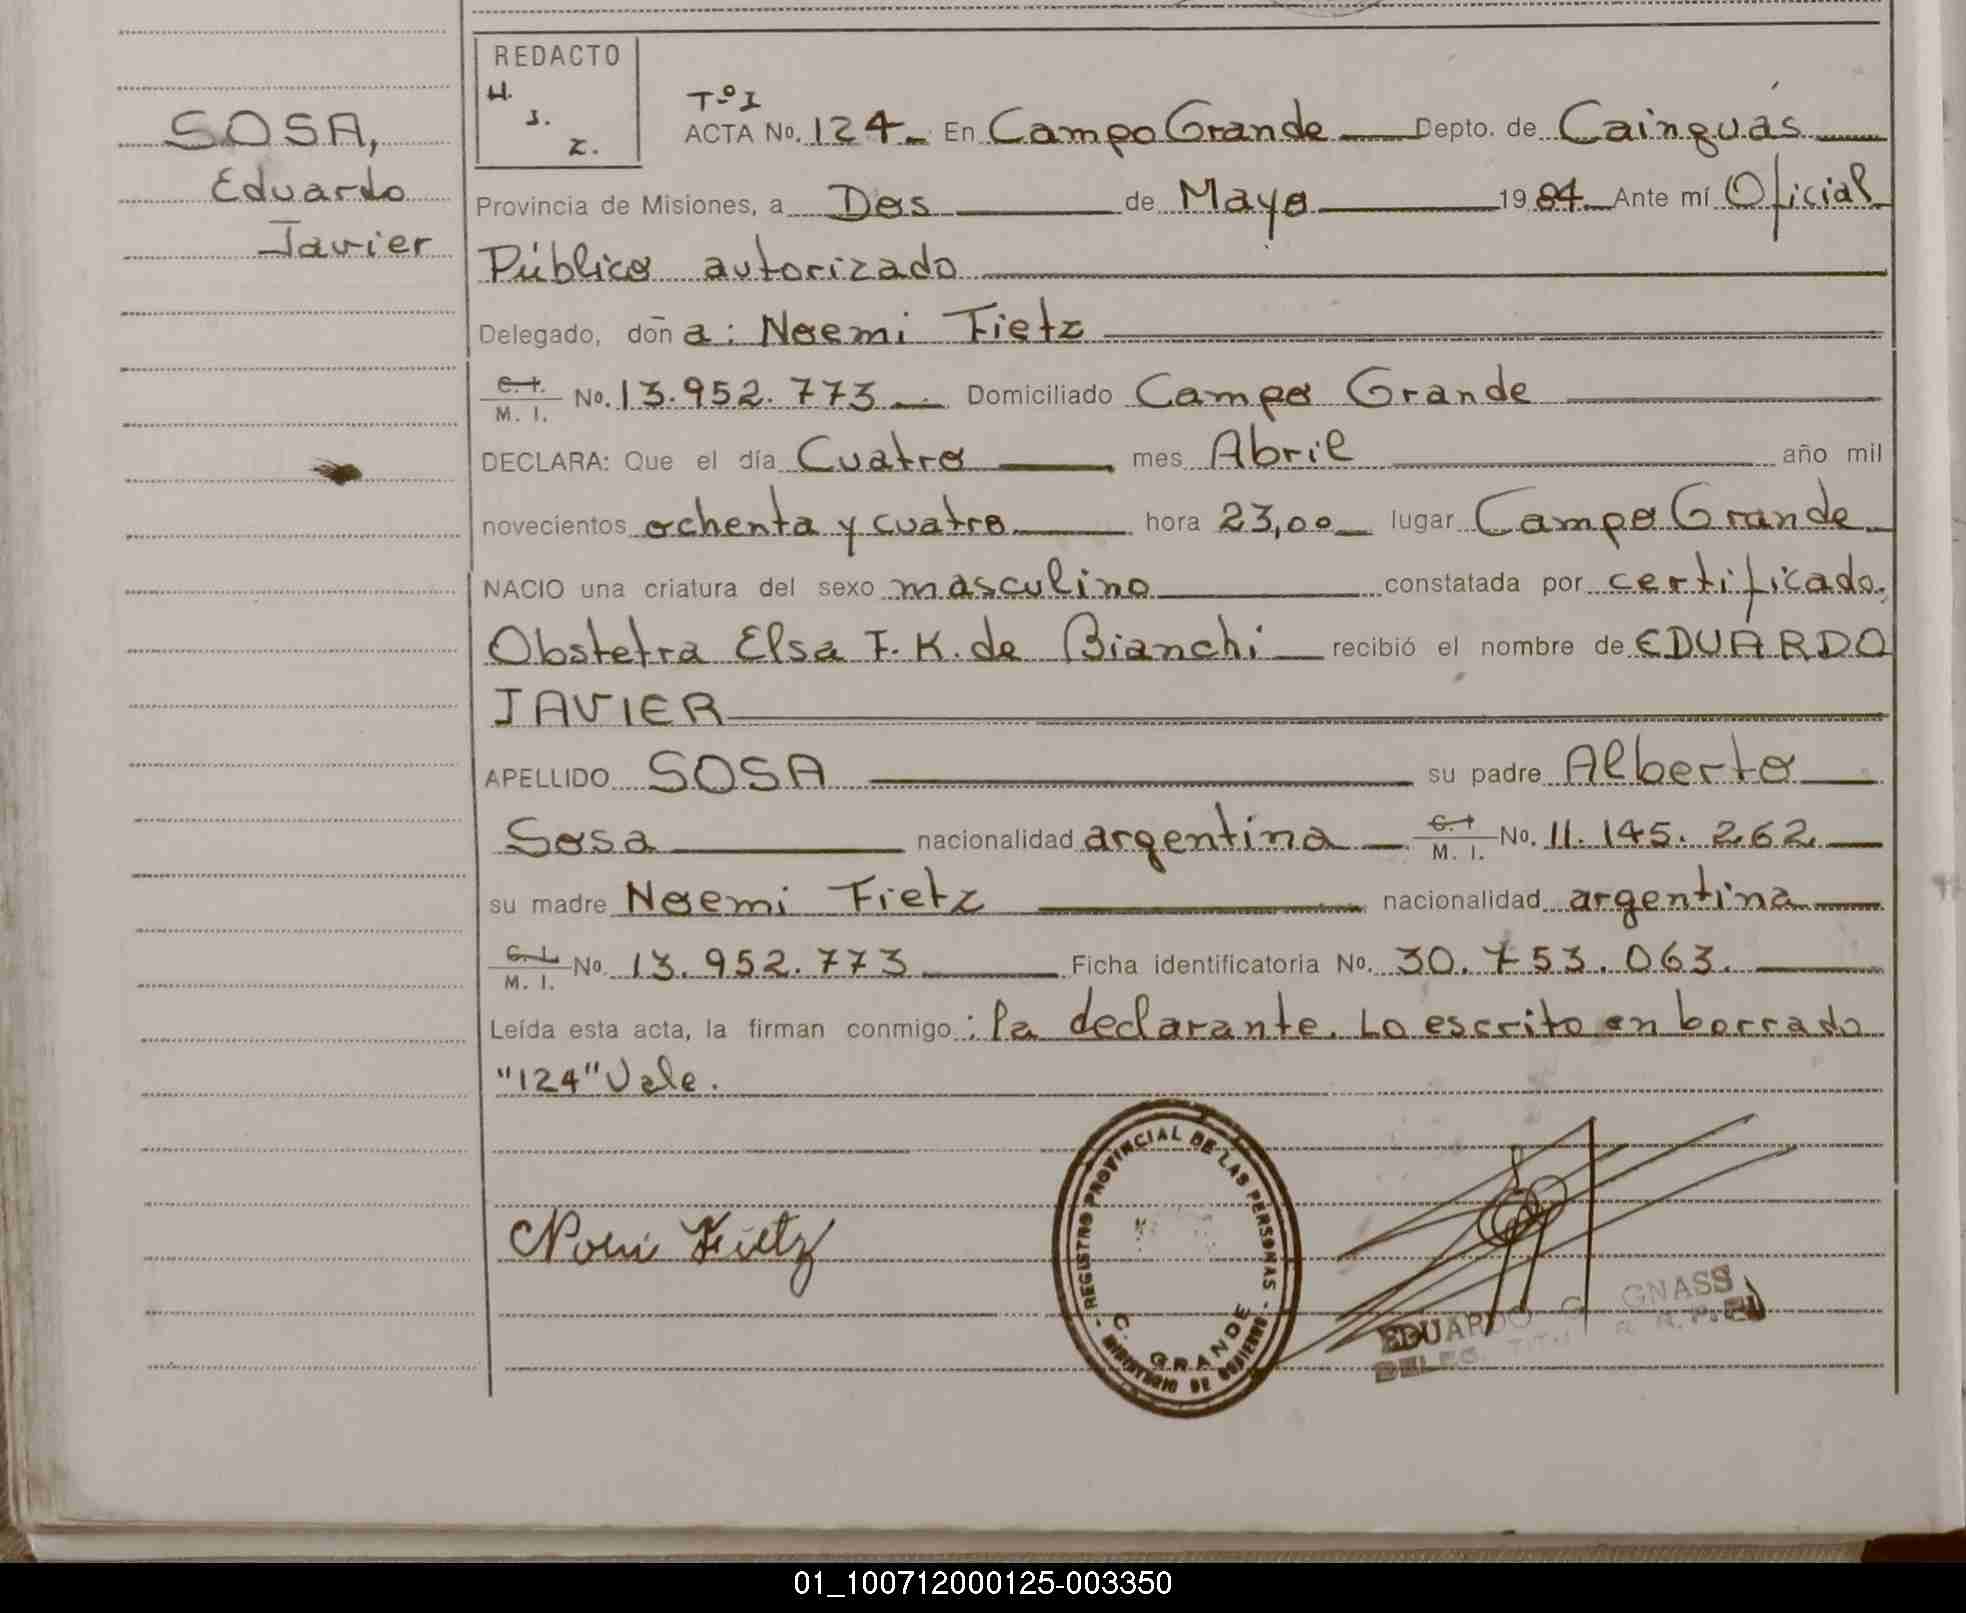 SOSA,
Eduardo
Javier
REDACTO
H.
J.
Z.
Tº I
ACTA No. 124. En Campo Grande Depto. de Cainguás
Provincia de Misiones, a Dos de Mayo 1984. Ante mí Oficial
Público autorizado
Delegado, doña: Noemi Fietz
C. I. M. I. No. 13.952.773 Domiciliado Campo Grande
DECLARA: Que el día Cuatro mes Abril año mil
novecientos ochenta y cuatro hora 23,00 lugar Campo Grande
NACIO una criatura del sexo masculino constatada por certificado.
Obstetra Elsa F. K. de Bianchi recibió el nombre de EDUARDO
JAVIER
APELLIDO SOSA su padre Alberto
Sosa nacionalidad argentina C. I. M. I. No. 11.145.262
su madre Noemi Fietz nacionalidad argentina
C. I. M. I. No. 13.952.773 Ficha identificatoria No. 30.753.063.
Leída esta acta, la firman conmigo: la declarante. Lo escrito en borrado
"124" Vale.
Noemi Fietz
- REGISTRO PROVINCIAL DE LAS PERSONAS -
MINISTERIO DE GOBIERNO
C. GRANDE
EDUARDO G. GNASS
DELEG. TIT.
01_100712000125-003350